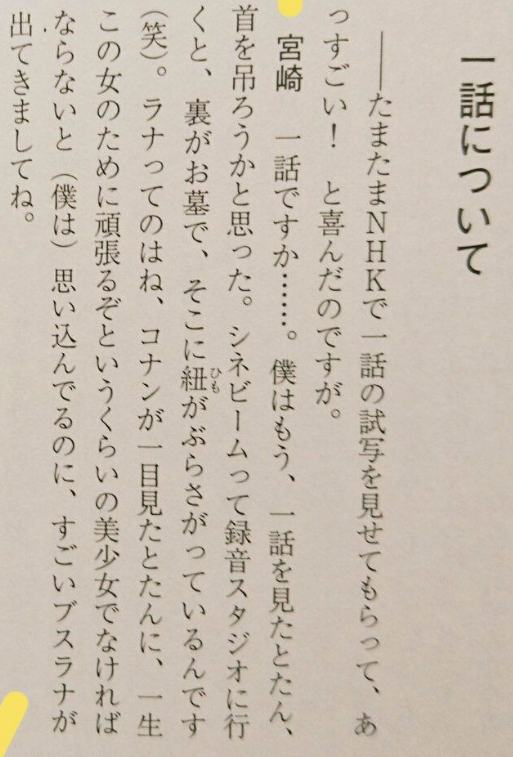 一話について
――たまたまNHKで一話の試写を見せてもらって、あ
っすごい！　と喜んだのですが。
宮崎　一話ですか……。僕はもう、一話を見たとたん、
首を吊ろうかと思った。シネビームって録音スタジオに行
くと、裏がお墓で、そこに紐がぶらさがっているんです
ひも
（笑）。ラナってのはね、コナンが一目見たとたんに、一生
この女のために頑張るぞというくらいの美少女でなければ
ならないと（僕は）思い込んでるのに、すごいブスラナが
出てきましてね。